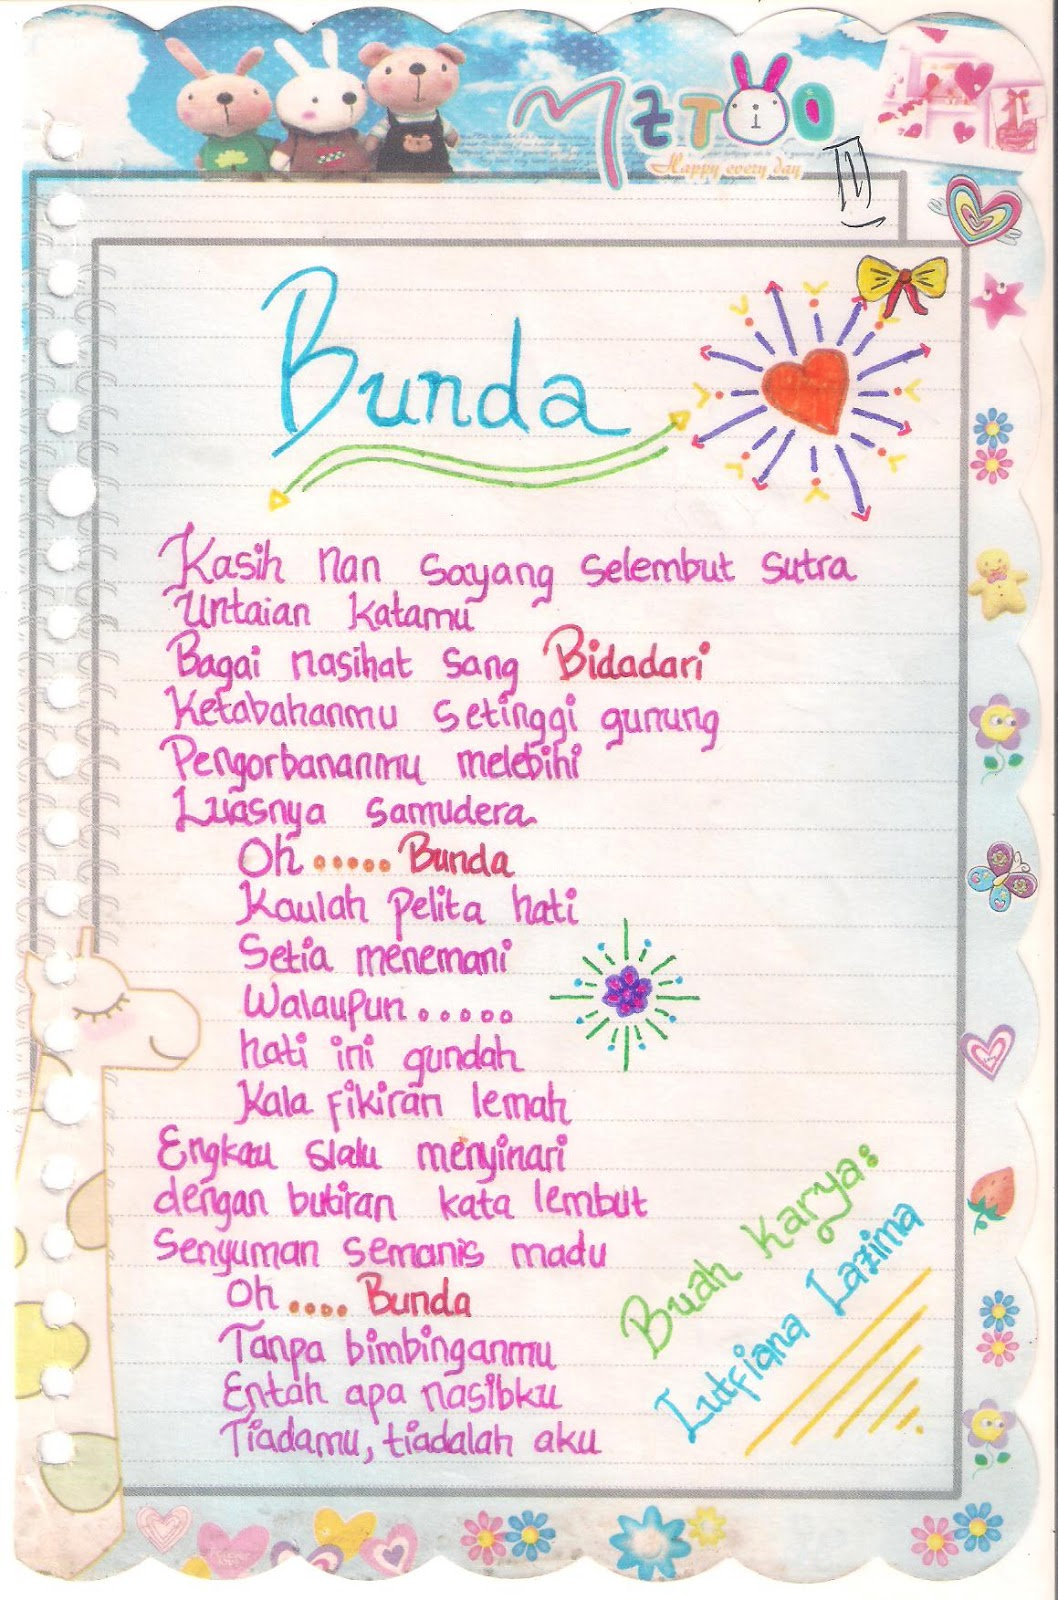 METOO
Happy every day
Bunda
Kasih nan sayang selembut sutra
Untaian katamu
Bagai nasihat sang Bidadari
Ketabahanmu setinggi gunung
Pengorbananmu melebihi
Luasnya samudera
Oh ..... Bunda
Kaulah pelita hati
Setia menemani
Walaupun .....
hati ini gundah
Kala fikiran lemah
Engkau slalu menyinari
dengan butiran kata lembut
Senyuman semanis madu
Oh .... Bunda
Tanpa bimbinganmu
Entah apa nasibku
Tiadamu, tiadalah aku
Buah Karya:
Lutfiana Lazima